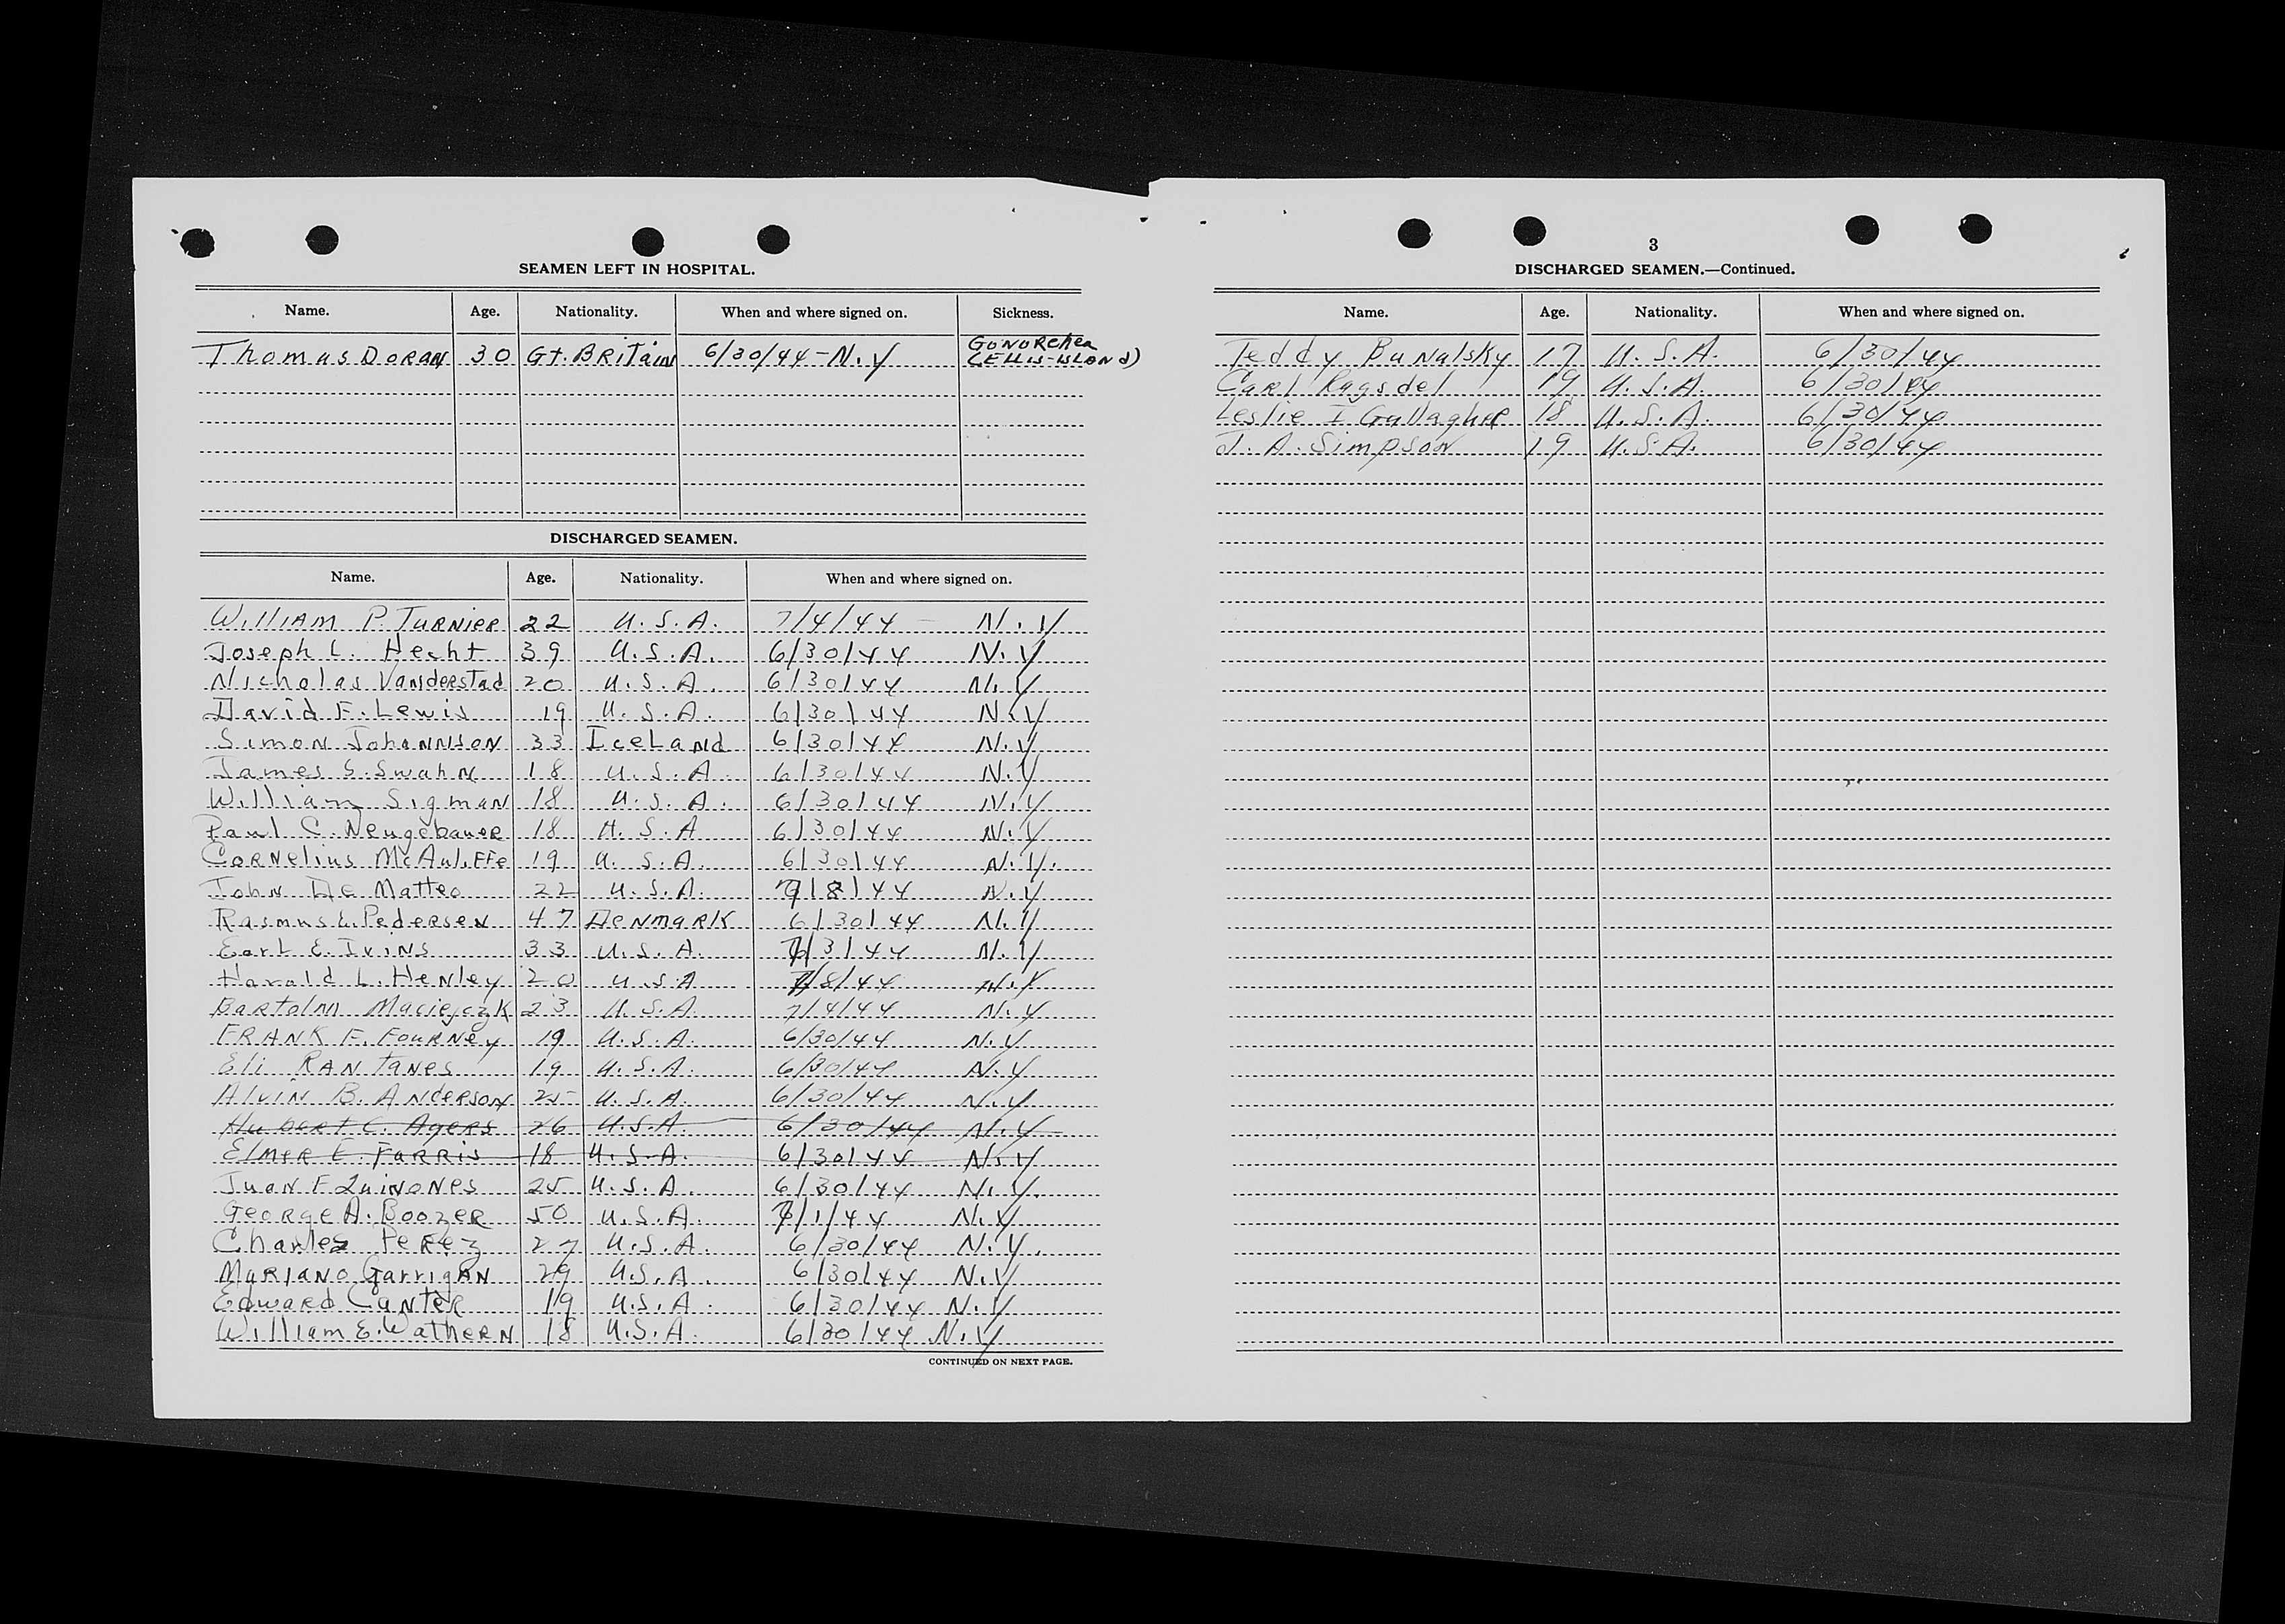 SEAMEN LEFT IN HOSPITAL.
Name. Age. Nationality. When and where signed on. Sickness.
Thomas Doran 30 Gt. Britain 6/30/44 - N.Y Gonorchea
(Ellis-Island)
DISCHARGED SEAMEN.
Name. Age. Nationality. When and where signed on.
William P. Turnier 22 U.S.A. 7/4/44 - N.Y
Joseph L. Hecht 39 U.S.A. 6/30/44 N.Y
Nicholas Vanderstad 20 U.S.A. 6/30/44 N.Y
David F. Lewis 19 U.S.A. 6/30/44 N.Y
Simon Johannison 33 Iceland 6/30/44 N.Y
James S. Swahn 18 U.S.A. 6/30/44 N.Y
William Sigman 18 U.S.A. 6/30/44 N.Y
Paul C. Neugebauer 18 U.S.A 6/30/44 N.Y
Cornelius McAuliffe 19 U.S.A. 6/30/44 N.Y.
John De Matteo 22 U.S.A. 7/8/44 N.Y
Rasmus E. Pedersen 47 Denmark 6/30/44 N.Y
Earl E. Ivins 33 U.S.A. 7/3/44 N.Y
Harold L. Henley 20 U.S.A 7/8/44 N.Y
Maciejczk 23 U.S.A. 7/4/44 N.Y
Frank F. Fourney 19 U.S.A. 6/30/44 N.Y
Eli Rantanes 19 U.S.A. 6/30/44 N.Y
Alvin B. Anderson 25 U.S.A. 6/30/44 N.Y
Hubert C. Agers 26 U.S.A. 6/30/44 N.Y
Elmer E. Farris 18 U.S.A. 6/30/44 N.Y
Juan F Quinones 25 U.S.A. 6/30/44 N.Y.
George A. Boozer 50 U.S.A. 7/1/44 N.Y
Charles Perez 27 U.S.A. 6/30/44 N.Y.
Mariano Garrigan 29 U.S.A. 6/30/44 N.Y
Edward Canter 19 U.S.A. 6/30/44 N.Y
William E. Wathern 18 U.S.A. 6/30/44 N.Y
CONTINUED ON NEXT PAGE.
3
DISCHARGED SEAMEN.—Continued.
Name. Age. Nationality. When and where signed on.
Teddy Bunalsky 17 U.S.A. 6/30/44
Carl Ragsdel 19 U.S.A. 6/30/44
Leslie I Gallagher 18 U.S.A. 6/30/44
J. A. Simpson 19 U.S.A. 6/30/44